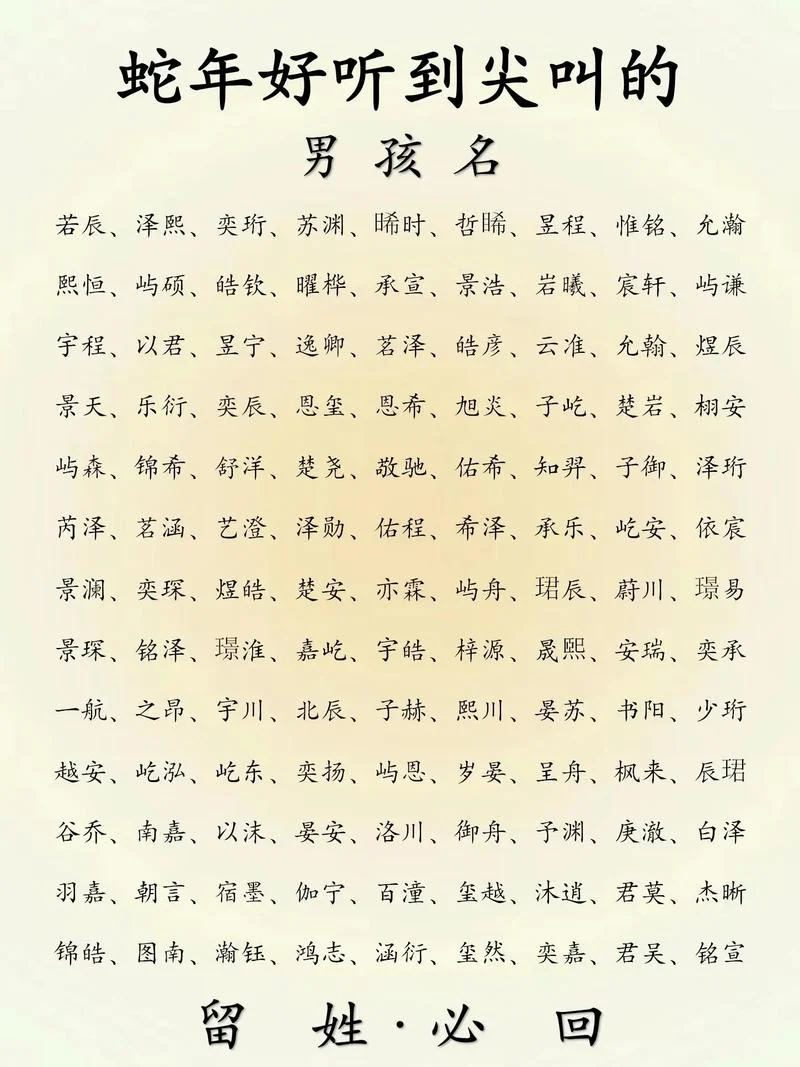 蛇年好听到尖叫的
男孩名
若辰、泽熙、奕珩、苏渊、晞时、哲晞、昱程、惟铭、允瀚
熙恒、屿硕、皓钦、曜桦、承宣、景浩、岩曦、宸轩、屿谦
宇程、以君、昱宁、逸卿、茗泽、皓彦、云准、允翰、煜辰
景天、乐衍、奕辰、恩玺、恩希、旭炎、子屹、楚岩、栩安
屿森、锦希、舒洋、楚尧、敬驰、佑希、知羿、子御、泽珩
芮泽、茗涵、艺澄、泽勋、佑程、希泽、承乐、屹安、依宸
景澜、奕琛、煜皓、楚安、亦霖、屿舟、珺辰、蔚川、璟易
景琛、铭泽、璟淮、嘉屹、宇皓、梓源、晟熙、安瑞、奕承
一航、之昂、宇川、北辰、子赫、熙川、晏苏、书阳、少珩
越安、屹泓、屹东、奕扬、屿恩、岁晏、呈舟、枫来、辰珺
谷乔、南嘉、以沫、晏安、洛川、御舟、予渊、庚澈、白泽
羽嘉、朝言、宿墨、伽宁、百潼、玺越、沐逍、君莫、杰晰
锦皓、图南、瀚钰、鸿志、涵衍、玺然、奕嘉、君吴、铭宣
留姓·必回